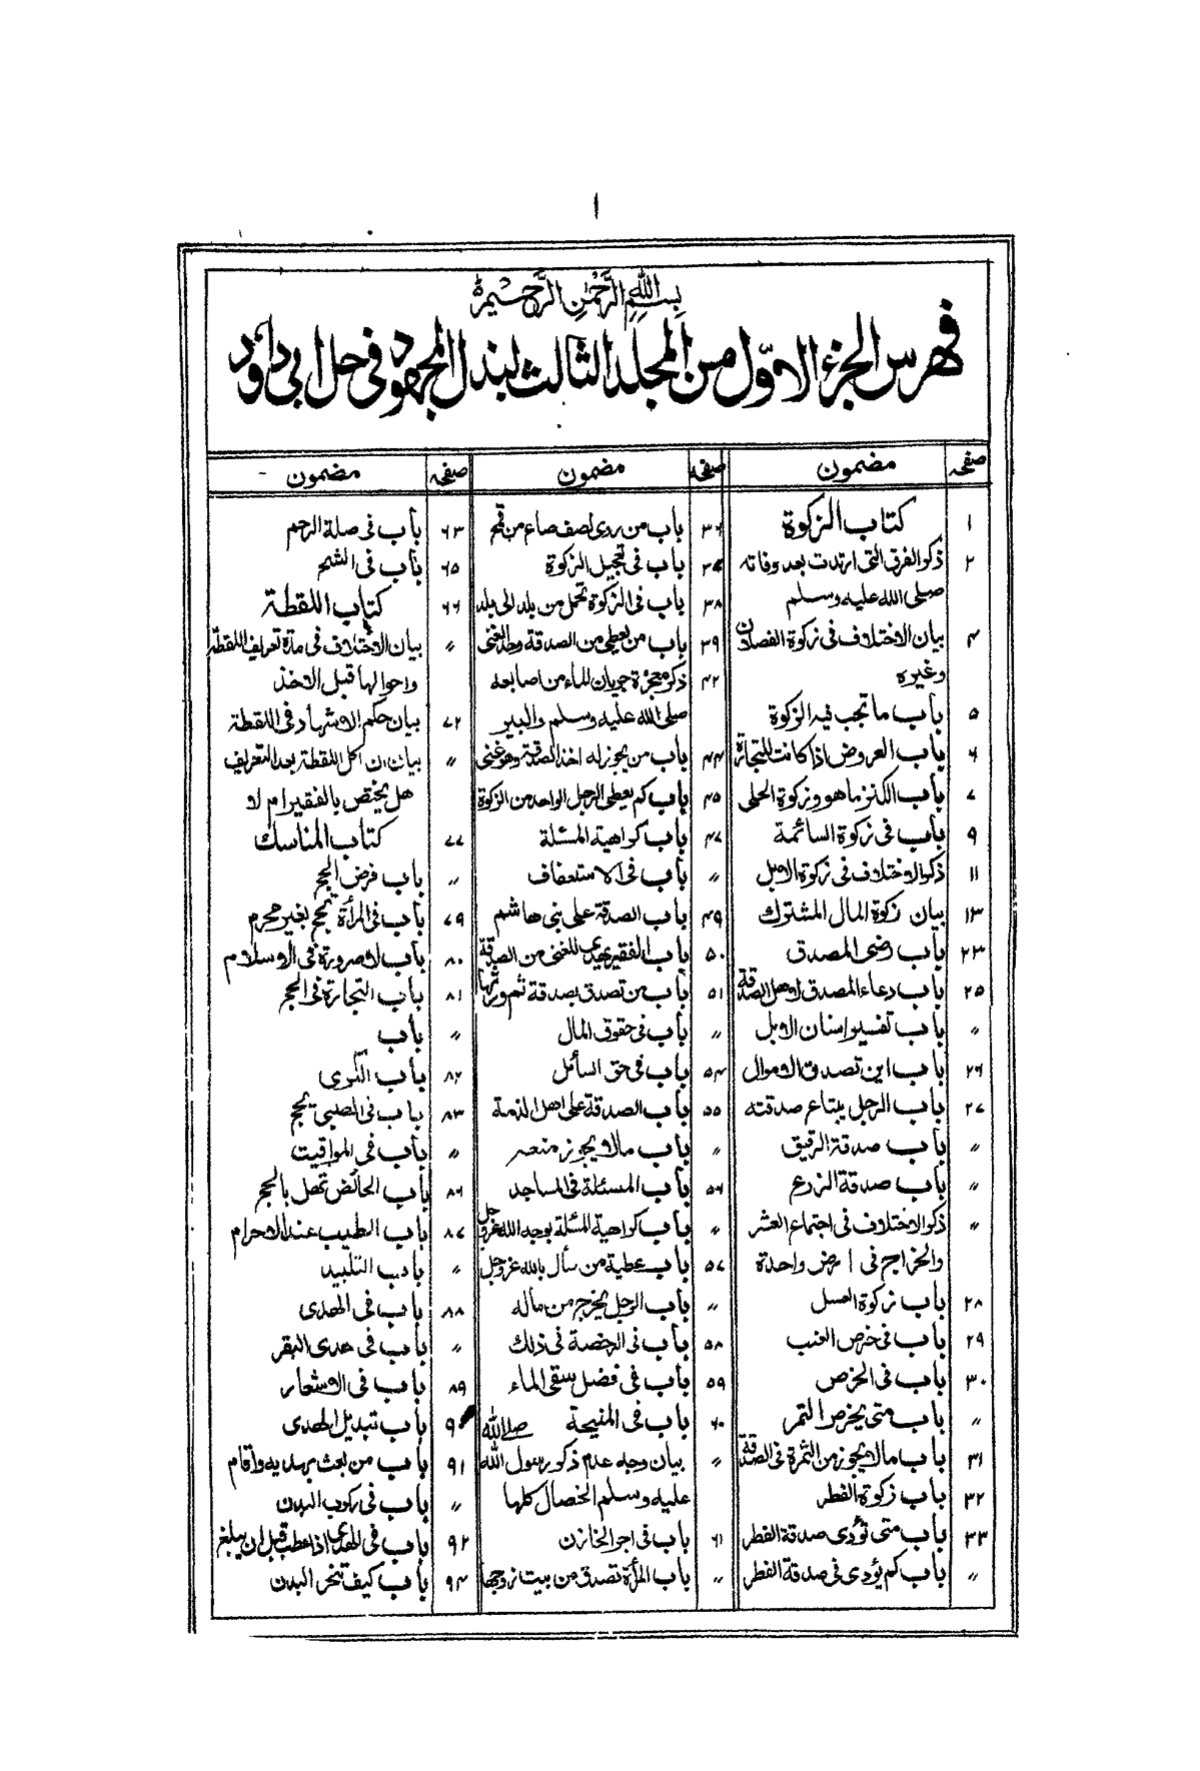 ١
بِسْمِ اللهِ الرَّحْمٰنِ الرَّحِيْمِ
فهرس الجزء الاوّل من المجلد الثالث لبذل المجهود فى حل ابى داود
صفحه مضمون
١ كتاب الزكوة
٢ ذكر الفرق التى ارتدت بعد وفاته
صلى الله عليه وسلم
٤ بيان الاختلاف فى زكوة الفصلان
وغيره
٥ باب ما تجب فيه الزكوة
٦ باب العروض اذا كانت للتجارة
٧ باب الكنز ما هو وزكوة الحلى
٩ باب فى زكوة السائمة
١١ ذكر الاختلاف فى زكوة الابل
١٣ بيان زكوة المال المشترك
٢٣ باب رضى المصدق
٢٥ باب دعاء المصدق لاهل الصدقة
〃 باب تفسير اسنان الابل
٢٦ باب اين تصدق الاموال
٢٧ باب الرجل يبتاع صدقته
〃 باب صدقة الرقيق
〃 باب صدقة الزرع
〃 ذكر الاختلاف فى اجتماع العشر
والخراج فى ارض واحدة
٢٨ باب زكوة العسل
٢٩ باب فى خرص العنب
٣٠ باب فى الخرص
〃 باب متى يخرص التمر
٣١ باب ما لا يجوز من الثمرة فى الصدقة
٣٢ باب زكوة الفطر
٣٣ باب متى تؤدى صدقة الفطر
〃 باب كم يؤدى فى صدقة الفطر
صفحه مضمون
٣٦ باب من روى نصف صاع من قمح
٣٧ باب فى تعجيل الزكوة
٣٨ باب فى الزكوة تحمل من بلد الى بلد
٣٩ باب من يعطى من الصدقة وحد الغنى
٤٢ ذكر معجزة جريان الماء من اصابعه
صلى الله عليه وسلم والبير
٤٤ باب من يجوز له اخذ الصدقة وهو غنى
٤٥ باب كم يعطى الرجل الواحد من الزكوة
٤٧ باب كراهية المسئلة
〃 باب فى الاستعفاف
٤٩ باب الصدقة على بنى هاشم
٥٠ باب الفقير يهدى للغنى من الصدقة
٥١ باب من تصدق بصدقة ثم ورثها
〃 باب فى حقوق المال
٥٤ باب فى حق السائل
٥٥ باب الصدقة على اهل الذمة
〃 باب ما لا يجوز منعه
٥٦ باب المسئلة فى المساجد
〃 باب كراهية المسئلة بوجه الله عزوجل
٥٧ باب عطية من سأل بالله عزوجل
〃 باب الرجل يخرج من ماله
٥٨ باب فى الرخصة فى ذلك
٥٩ باب فى فضل سقى الماء
٦٠ باب فى المنيحة
〃 بيان وجه عدم ذكر رسول الله صلى الله
عليه وسلم الخصال كلها
٦١ باب فى اجر الخازن
〃 باب المرأة تصدق من بيت زوجها
صفحه مضمون
٦٣ باب فى صلة الرحم
٦٥ باب فى الشح
٦٦ كتاب اللقطة
〃 بيان الاختلاف فى مدة تعريف اللقطة
واحوالها قبل الاخذ
٧٢ بيان حكم الاشهاد فى اللقطة
〃 بيان ان اكل اللقطة بعد التعريف
هل يختص بالفقير ام لا
٧٧ كتاب المناسك
〃 باب فرض الحج
٧٩ باب فى المرأة تحج بغير محرم
٨٠ باب لا صرورة فى الاسلام
٨١ باب التجارة فى الحج
〃 باب
٨٢ باب الكرى
٨٣ باب فى الصبى يحج
〃 باب فى المواقيت
٨٦ باب الحائض تهل بالحج
٨٧ باب الطيب عند الاحرام
〃 باب التلبيد
٨٨ باب فى الهدى
〃 باب فى هدى البقر
٨٩ باب فى الاشعار
٩٠ باب تبديل الهدى
٩١ باب من بعث بهديه واقام
〃 باب فى ركوب البدن
٩٢ باب فى الهدى اذا عطب قبل ان يبلغ
٩٤ باب كيف تنحر البدن